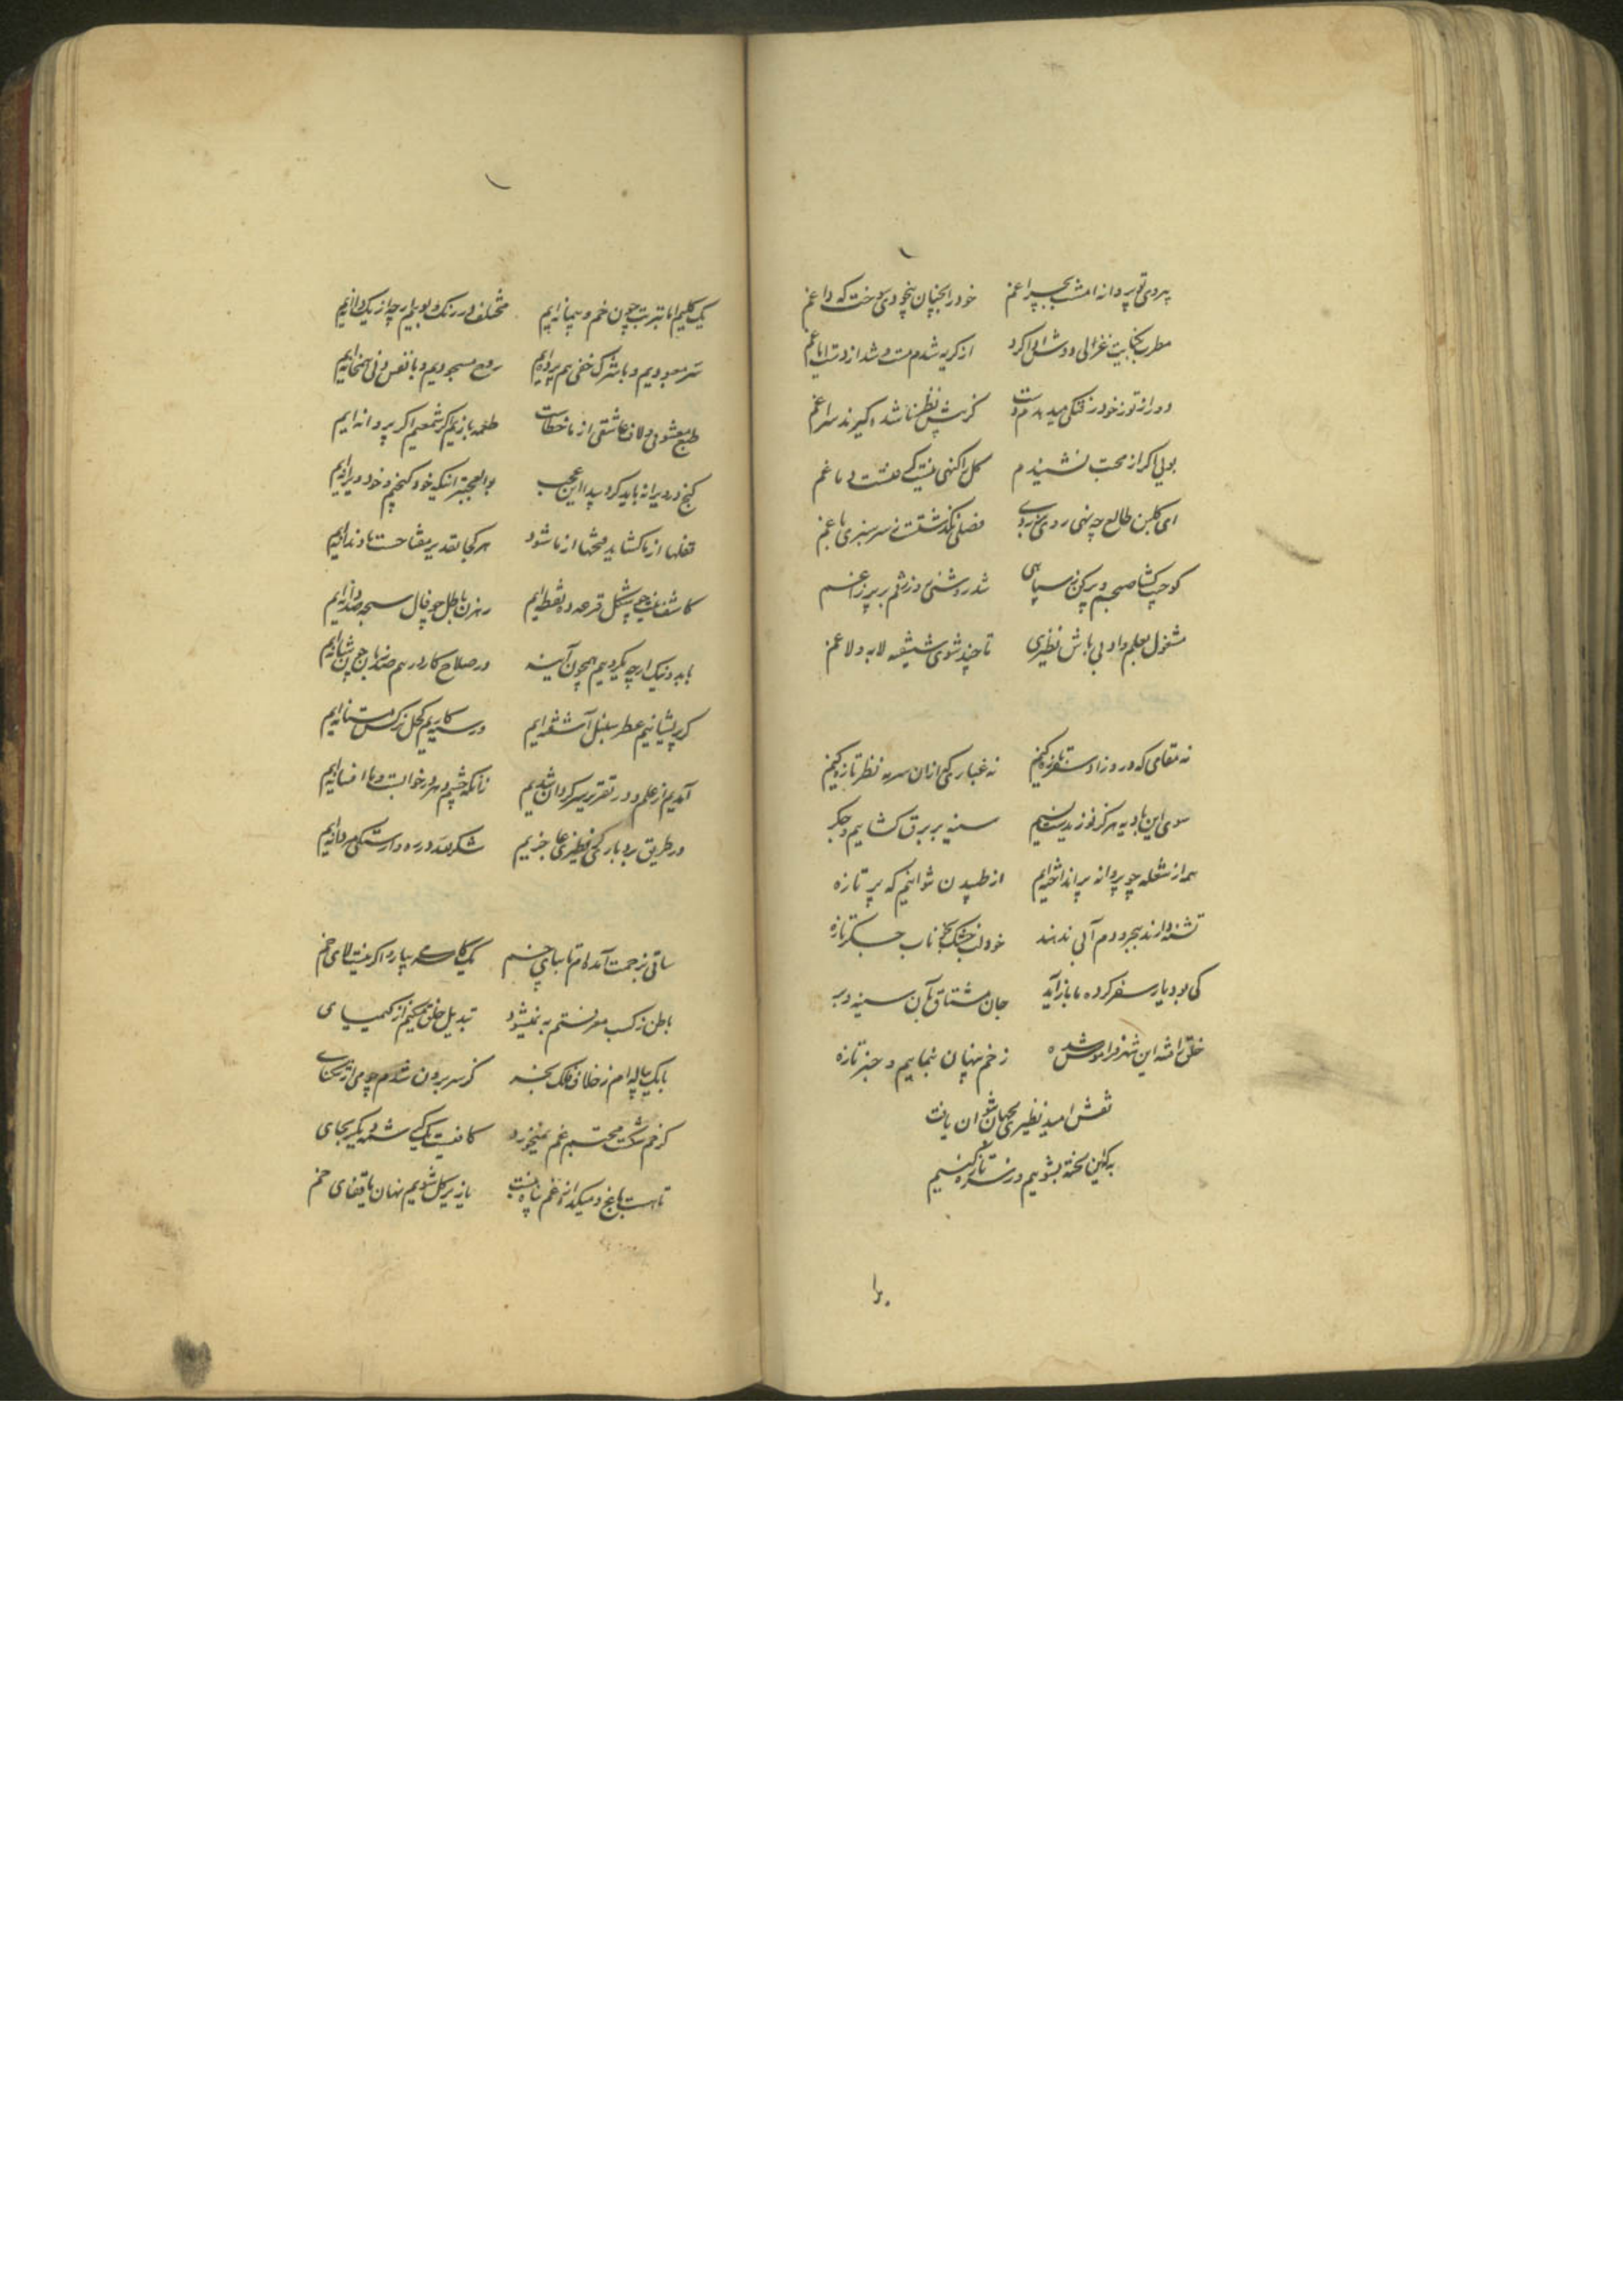 بی روی تو پروانه امشب بچراغم خود را بچنان بیخودی سوخت که داغم
مطرب بحکایت غزالی دوش ادا کرد از گریه شدم مست و شد از دست ایاغم
دور از تو ز خود رفتگی میدهدم دست کز پیش نظر ناشده گیرند سراغم
بویی اگر از محبت نشنیدم گل را گنهی نیست که هست دماغم
ای گلبن طالع چه نهی روی بزردی فصلی نگذشتست ز سرسبزی باغم
کو جیب گشا صبحدم و پرکن سیاهی شد روشنی روزنم بر پر زاغم
مشغول بعلم و ادبی باش نظیری تا چند شوی شیفته لابه و لاغم
نه مقامی که درو زاد سفر تازه کنیم نه غباری که ازان سرمه نظر تازه کنیم
سوی این بادیه هرگز نوزیدست نسیم سینه بر برق گشاییم و جگر
همه از شعله چو پروانه پر انداخته ایم از طپیدن نتوانیم که پر تازه
تشنه دارند بهجر و دم آبی ندهند خود لب خشک بخوناب جگر تازه
کی بود یار سفر کرده ما باز آید جان مشتاق بآن سینه و بر
خلق را فتنه این شهر فراموش شده زخم پنهان بنماییم و خبر تازه
نقش امید نظیری بجهان نتوان یافت
به که این تخته بشوییم و ز سر تازه کنیم
با
یک گلیم اما بترتیب چون خم و پیمانه ایم مختلف در رنگ و بوییم ارچه از یک دانه ایم
سر معبودیم و با شرک خفی هم پرده ایم روح مسجودیم و با نفس دنی همخانه ایم
طبع معشوقی و لاف عاشقی از ما خطاست طعمه بازیم اگر شمعیم اگر پروانه ایم
گنج در ویرانه باید کرد پیدا این عجب بوالعجب تر آنکه خود گنجیم و خود ویرانه ایم
قفلها از ما گشاید فتحها از ما شود هر کجا تقدیر مفتاحست ما دندانه ایم
کاشف غیبیم چو بشکل قرعه ده نقطه ایم رهزن باطل چو فال سبحه صد دانه ایم
با بد و نیک ارچه یکرویم همچون آینه در صلاح کار درهم صد زبان چون شانه ایم
گر پریشانیم عطر سنبل آشفته ایم ور سیه کاریم کحل نرگس مستانه ایم
آمدیم از علم و در تقریر سرگردان شدیم زانکه چشم دهر در خوابست و ما افسانه ایم
در طریق بردباری گر نظیری عاجزیم شکر لله در ره وارستگی مردانه ایم
ساقی بزحمت آمده ام تا بپای خم یک کاسه پیار و اگر نیست لای خم
باطن ز کسب معرفتم به نمیشود تبدیل خلق میکنم از کیمیای
با یک پیاله ام ز خلاف فلک بخر کز سر برون شدم چو می از تنگنای
گر خم شکست محتسبم غم نمیخورد کافیست یک کسی شده دیگر بجای
تا هست باغ و میکده اندوه غم پناه نیست یا زیر گل شویم نهان یا قفای خم